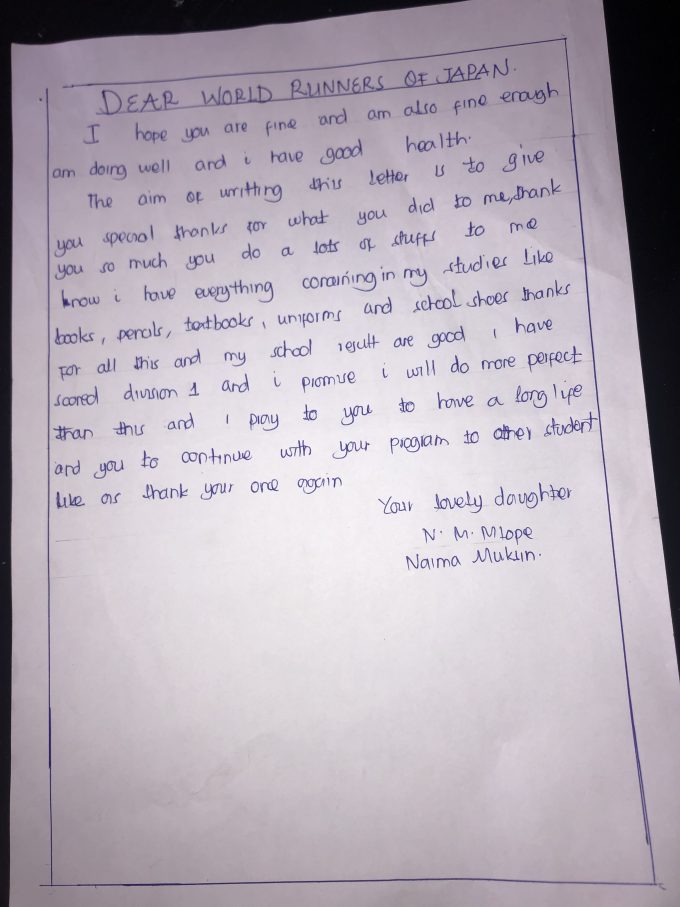 DEAR WORLD RUNNERS OF JAPAN.
I hope you are fine and am also fine enough
am doing well and i have good health.
The aim of writting this letter is to give
you special thanks for what you did to me, thank
you so much you do a lots of stuffs to me
know i have everything conraining in my studies like
books, pencils, textbooks, uniforms and school shoes thanks
for all this and my school result are good i have
scored division 1 and i promise i will do more perfect
than this and i pray to you to have a long life
and you to continue with your program to other student
like as thank your once again
Your lovely daughter
N. M. Mlope
Naima